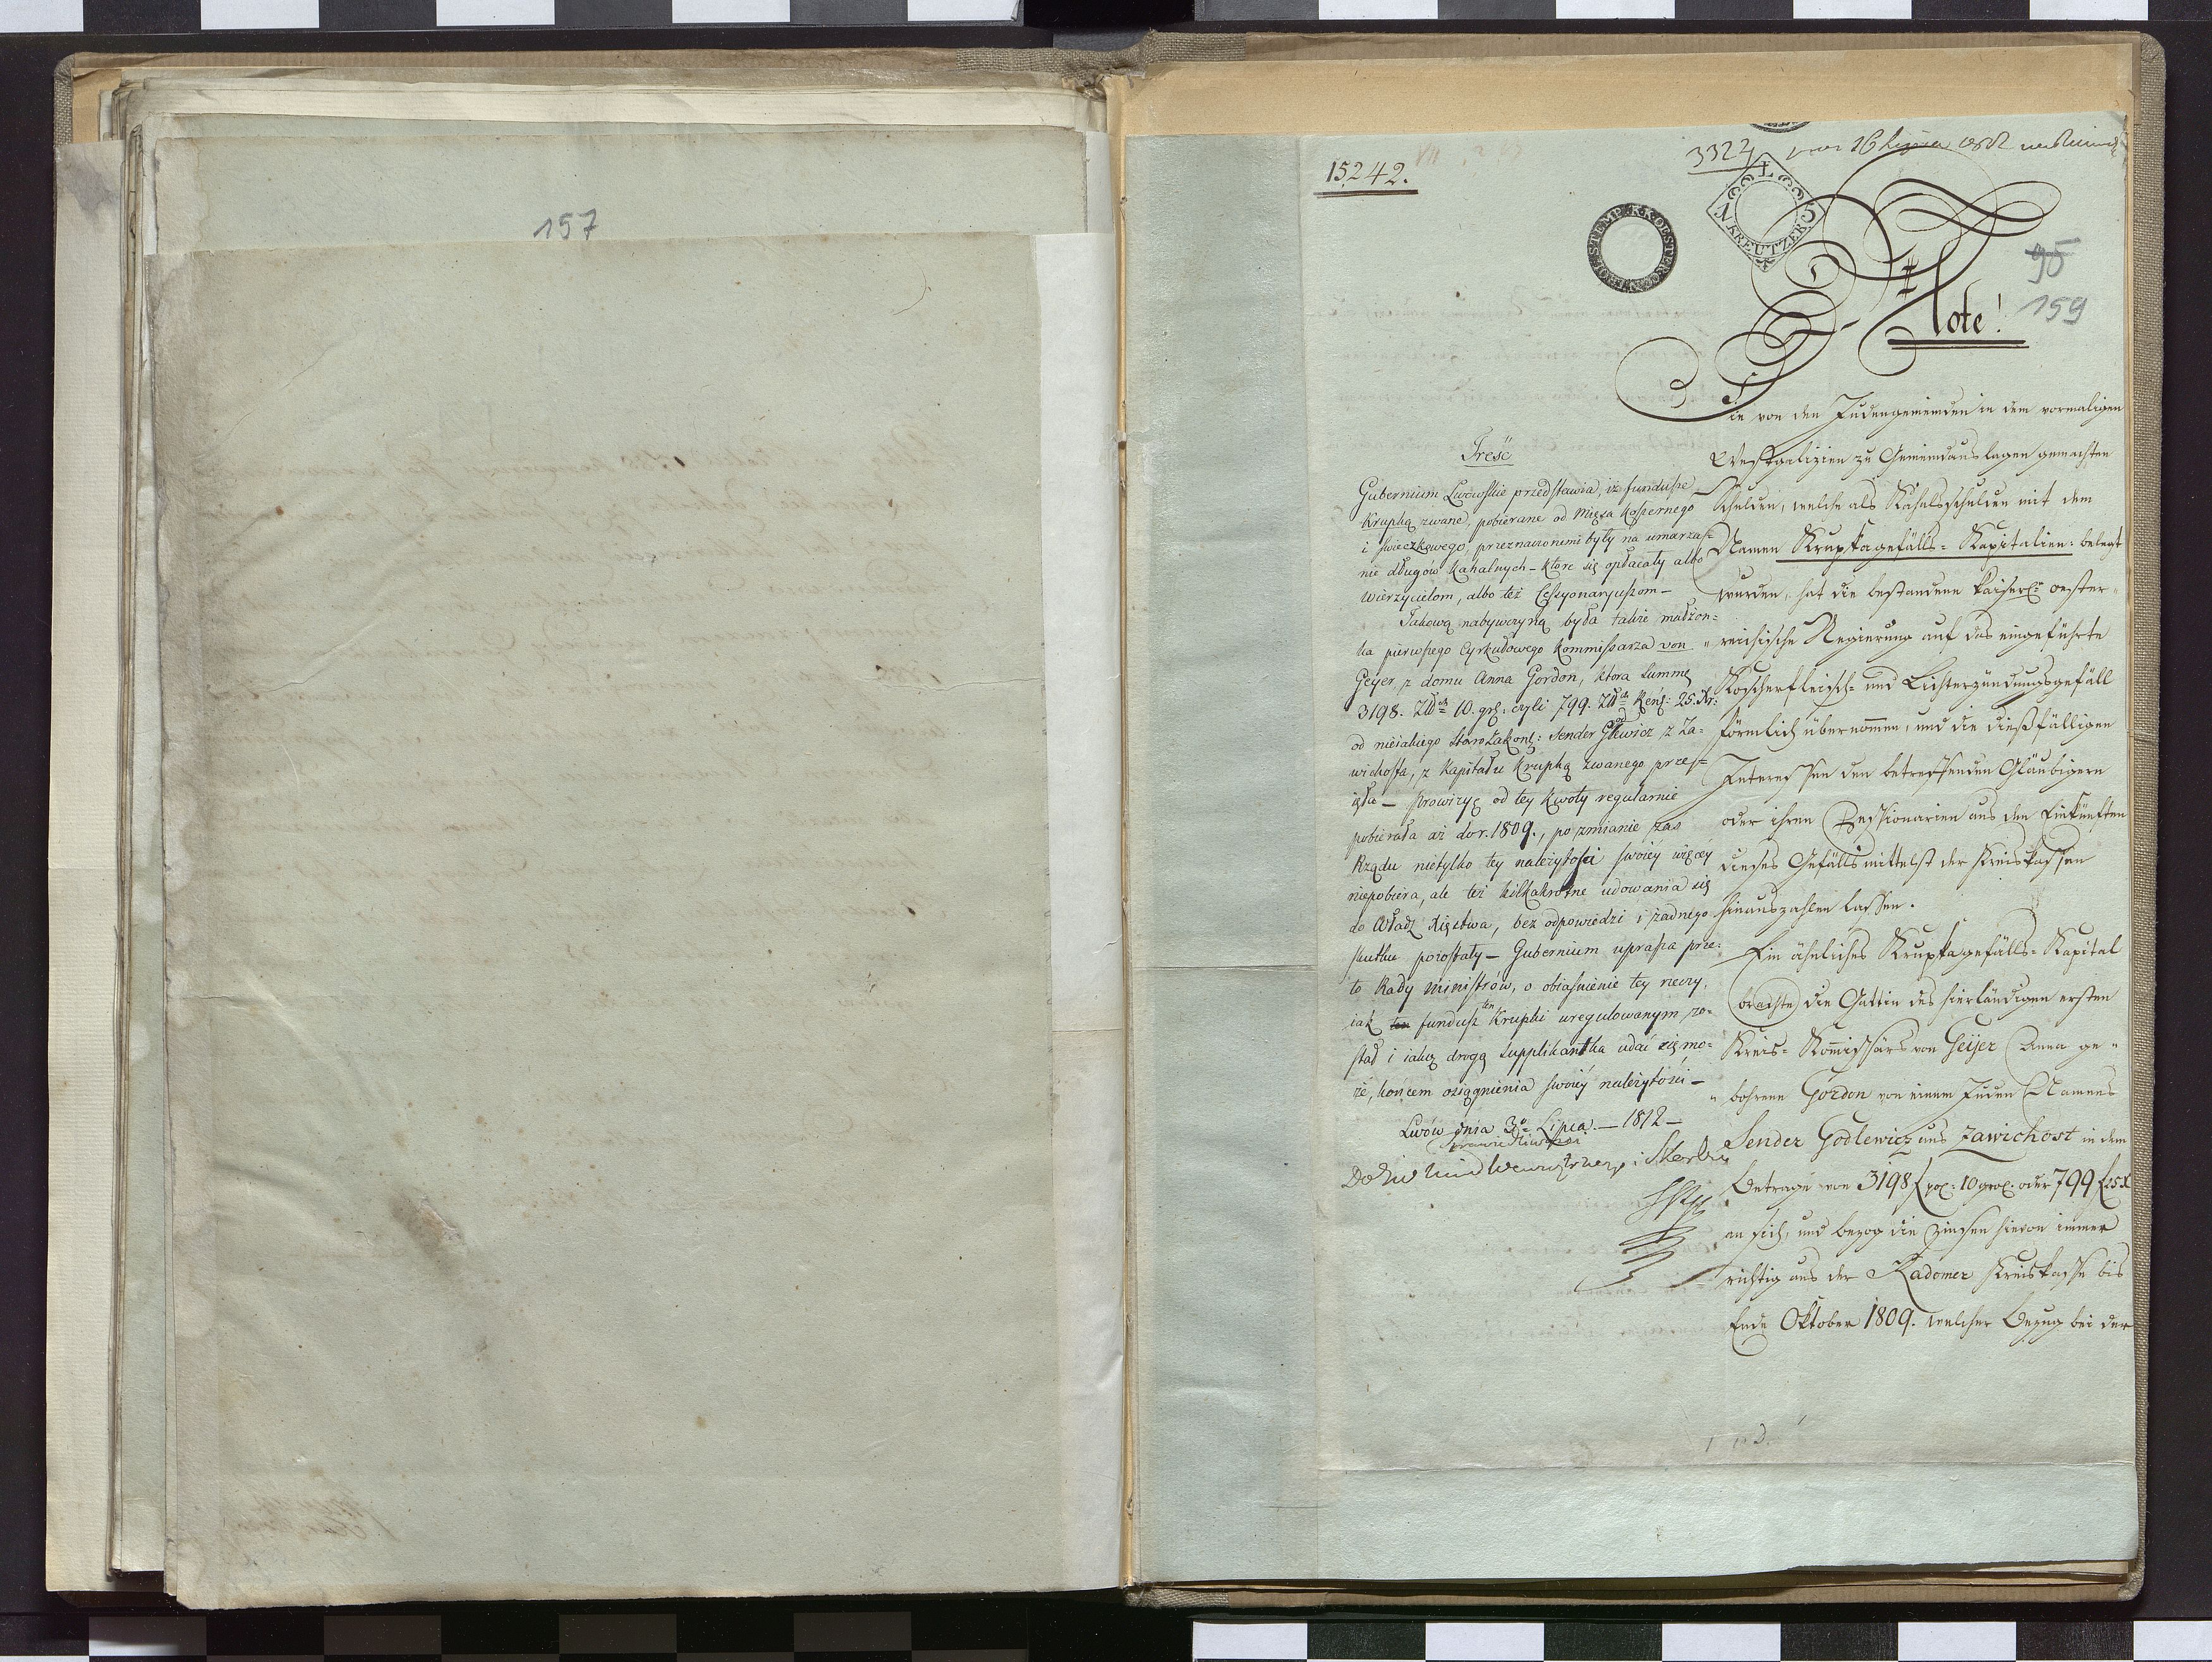 157
15,242.
3322
STEMP. K.K. OESTER.
15 KREUTZER
Note!
95
159
Treść
Gubernium Lwowskie przedstawia, iż fundusze
Krupką zwane, pobierane od mięsa koszernego
i świeczkowego, przeznaczonemi były na umarza=
nie długów Kahalnych – które się opłacały albo
Wierzycielom, albo też Cessyonaryuszom –
Takową nabywczyną była także małżon=
ka pierwszego Cyrkułowego Kommissarza von
Geyer, z domu Anna Gordon, ktora summę
3198. Złt 10. gr. czyli 799. Zł Reńs: 25. Kr:
od nieiakiego Starozakon: Sender Glewicz z Za=
wichosta, z Kapitału Krupką zwanego przei=
ęła – prowizyę od tey kwoty regularnie
pobierała aż do r. 1809., po zmianie zas
Rządu nietylko tey należytości swoiey więcey
niepobiera, ale też kilkakrotne udowania się
do Władz Xięstwa, bez odpowiedzi i żadnego
skutku pozostały – Gubernium uprasza prze=
to Rady Ministrów, o obiaśnienie tey rzeczy,
iak ten fundusz Krupki uregulowanym zo=
stał i iaką drogą Supplikantka udać się mo=
że, końcem osiągnienia swoiéy należytości –
Lwów dnia 3o Lipca. – 1812 –
Sprawiedliwości
i Skarbu
Die von den Judengemeinden in dem vormaligen
Westgalizien zu Gemeindauslagen gemachten
Schulden, welche als Kahalsschulden mit dem
Namen Krupkagefälls= Kapitalien: belegt
wurden, hat die bestandene kaiserl: oester=
reichische Regierung auf das eingeführte
Koscherfleisch= und Lichterzündungsgefäll
förmlich übernommen, und die dießfälligen
Interessen den betreffenden Gläubigern
oder ihren Zessionarien aus den Einkünften
dieses Gefälls mittelst der Kreiskassen
hinauszahlen lassen.
Ein ähnliches Krupkagefälls= Kapital
brachte die Gattin des hierländigen ersten
Kreis= Kommissärs von Geijer Anna ge=
bohrene Gordon von einem Juden Namens
Sender Godlewicz aus Zawichost in dem
Betrage von 3198 f pol: 10 grol. oder 799 f 25 x
an sich, und bezog die Zinsen hievon immer
richtig aus der Radomer Kreiskasse bis
Ende Oktober 1809. welcher Bezug bei der